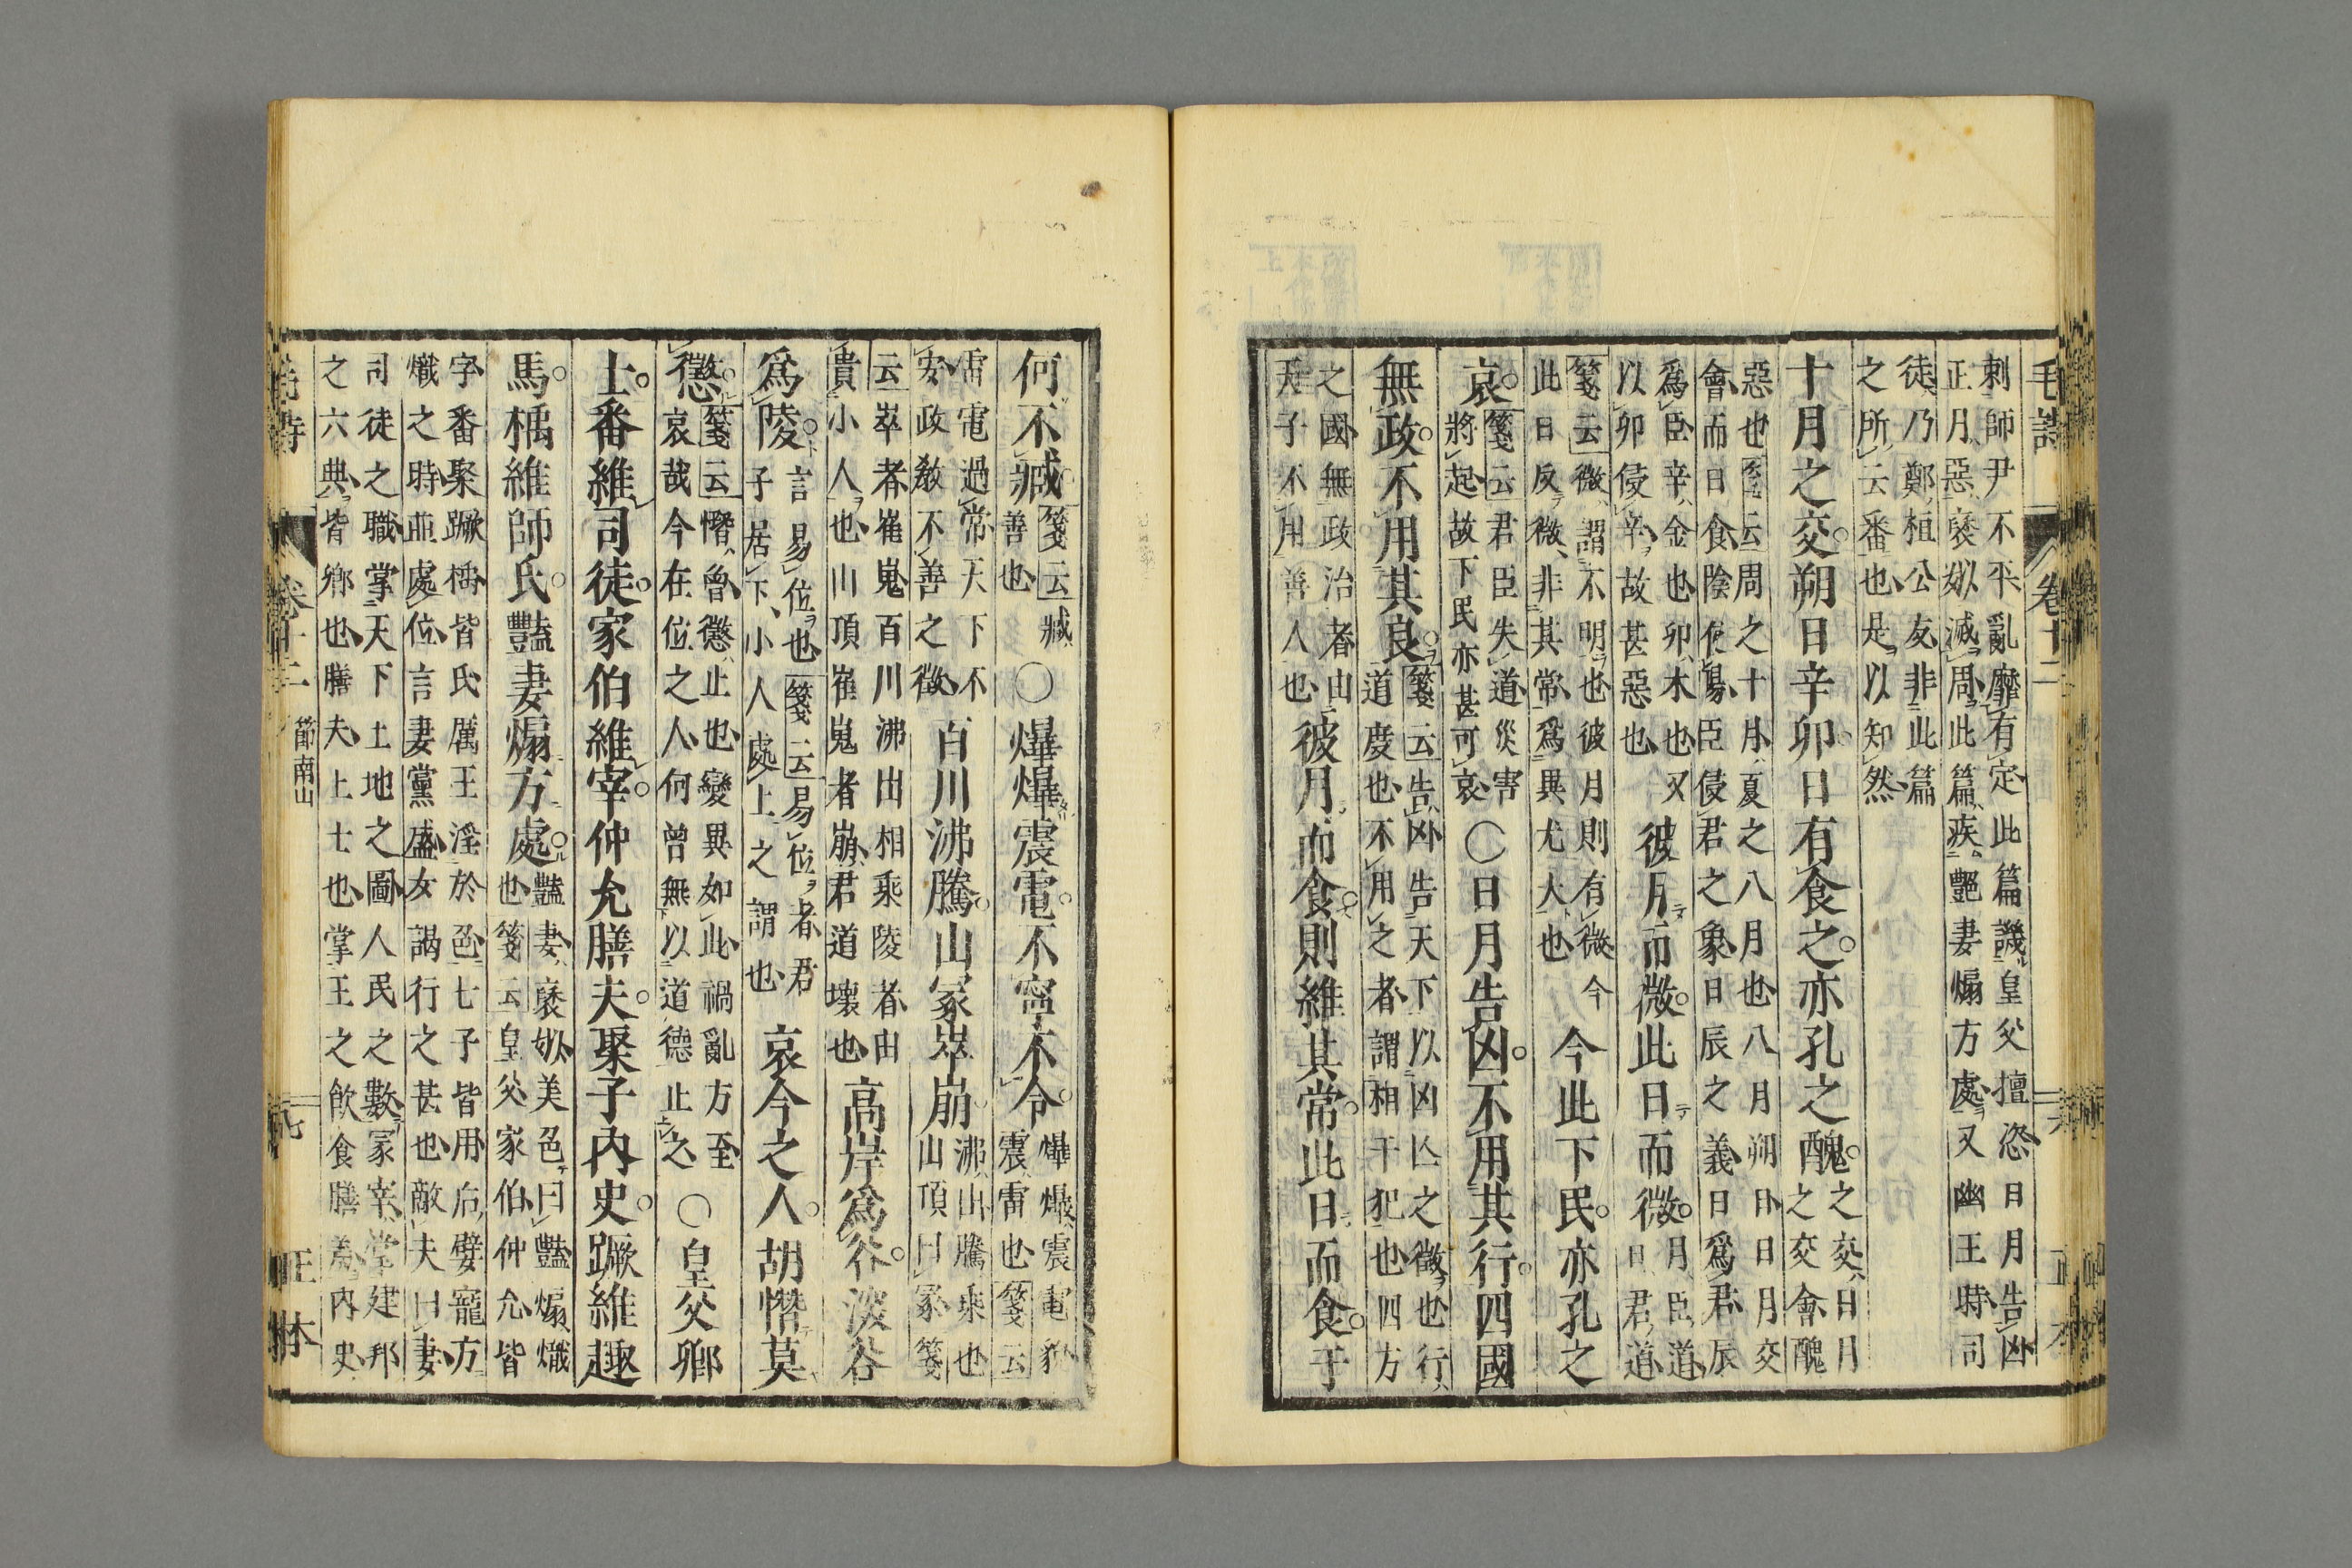 毛詩 卷十二
刺師尹不平亂靡有定此篇譏皇父擅恣日月告凶
正月惡褒姒滅周此篇疾豔妻煽方處又幽王時司
徒乃鄭桓公友非此篇
之所云番也是以知然
十月之交朔日辛卯日有食之亦孔之醜之交日月
之交會醜
惡也箋云周之十月夏之八月也八月朔日日月交
會而日食陰侵陽臣侵君之象日辰之義日爲君辰
爲臣辛金也卯木也又
以卯侵辛故甚惡也
彼月而微此日而微月臣道
日君道
箋云微謂不明也彼月則有微今
此日反微非其常爲異尤大也
今此下民亦孔之
哀箋云君臣失道災害
將起故下民亦甚可哀
○日月告凶不用其行四國
無政不用其良箋云告凶告天下以凶亡之徵也行
道度也不用之者謂相干犯也四方
之國無政治者由
天子不用善人也
彼月而食則維其常此日而食于
何不臧箋云臧
善也
○爗爗震電不寧不令爗爗震電貌
震雷也箋云
雷電過常天下不
安政敎不善之徵
百川沸騰山冢崒崩沸出騰乘也
山頂曰冢箋
云崒者崔嵬百川沸出相乘陵者由
貴小人也山頂崔嵬者崩君道壞也
高岸爲谷深谷
爲陵言易位也
子居下小人
箋云易位者君
處上之謂也
哀今之人胡憯莫
懲箋云憯曾懲止也變異如此禍亂方至
哀哉今在位之人何曾無以道德止之
○皇父卿
士番維司徒家伯維宰仲允膳夫聚子內史蹶維趣
馬楀維師氏豔妻煽方處豔妻褒姒美色曰豔煽熾
也箋云皇父家伯仲允皆
字番聚蹶楀皆氏厲王淫於色七子皆用后嬖寵方
熾之時並處位言妻黨盛女謁行之甚也敵夫曰妻
司徒之職掌天下土地之圖人民之數冢宰掌建邦
之六典皆卿也膳夫上士也掌王之飲食膳羞內史
毛詩 卷十二 節南山 七